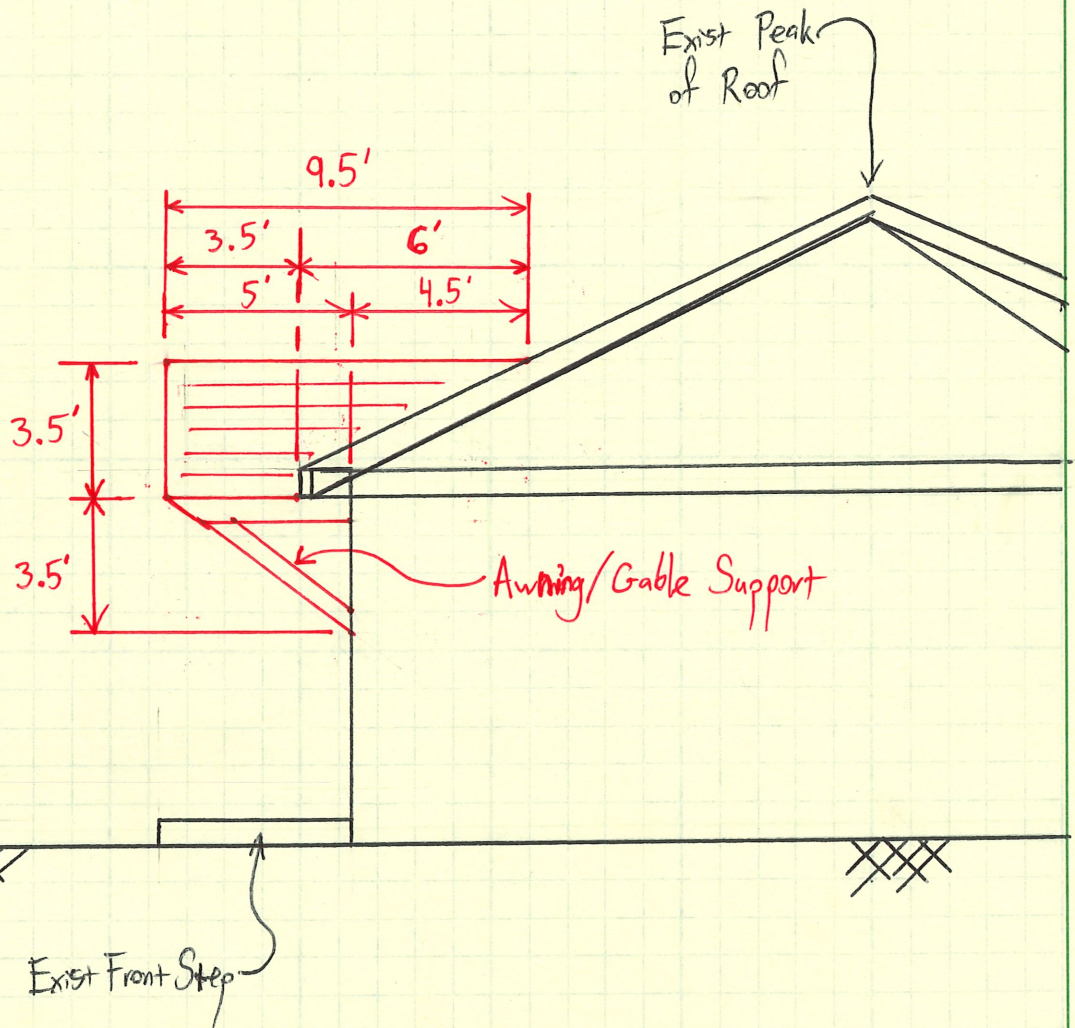 Exist Peak
of Roof
9.5'
3.5'
6'
5'
4.5'
3.5'
3.5'
Awning/Gable Support
Exist Front Step